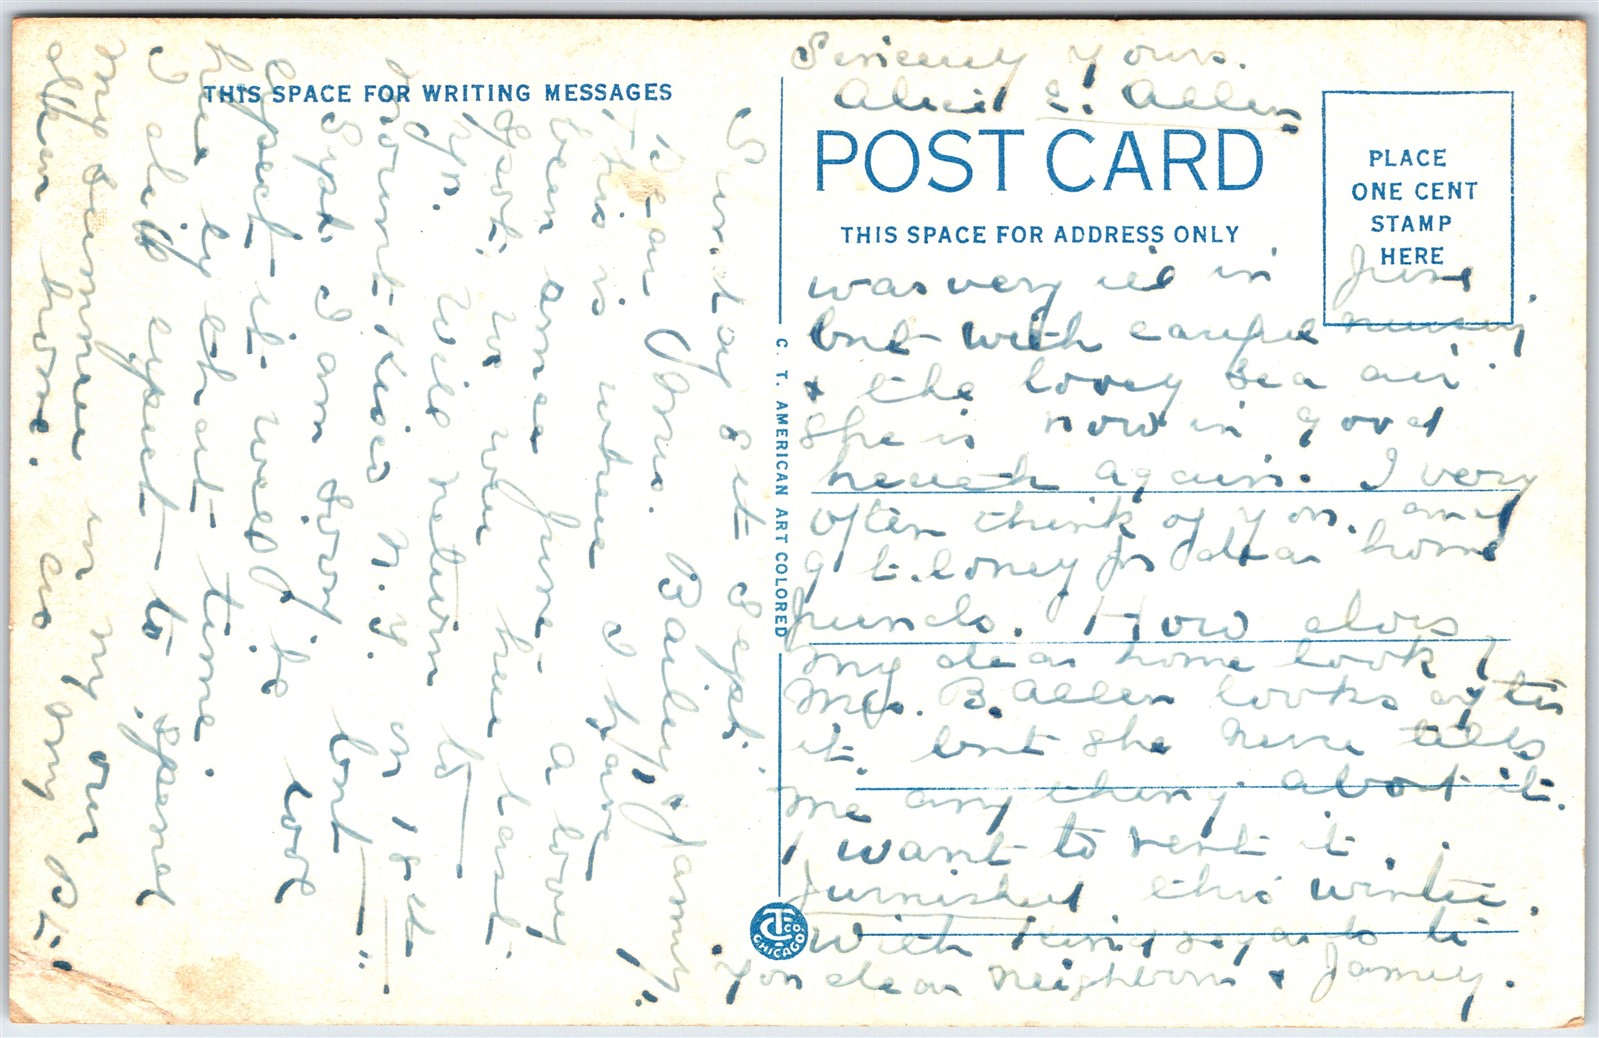 THIS SPACE FOR WRITING MESSAGES
Sunday 8th Sept.
Dear Mrs. Bailey & Family".
This is where I have
been since June a lovely
spot. We were here last
yr. Will return to
Mount Kisco N.Y. on 18th
Sept. I am sorry but"
expect it will be cool
here by that time.
I also expect to spend
my summer in my own
then home. as my
C. T. AMERICAN ART COLORED
C.T. CO. CHICAGO
POST CARD
THIS SPACE FOR ADDRESS ONLY
PLACE
ONE CENT
STAMP
HERE
was very ill in June.
but with careful nursing
& the lovely sea air
She is now in good
health again. I very
often think of you. and
get lonely for dear home
friends. How does
my dear home look?
Mrs. B. Allen looks after
it. but she never tells
me anything about it.
I want to rent it.
furnished this winter.
With kind regards to
you dear neighbors & Family.
Sincerely yours.
E. Allen